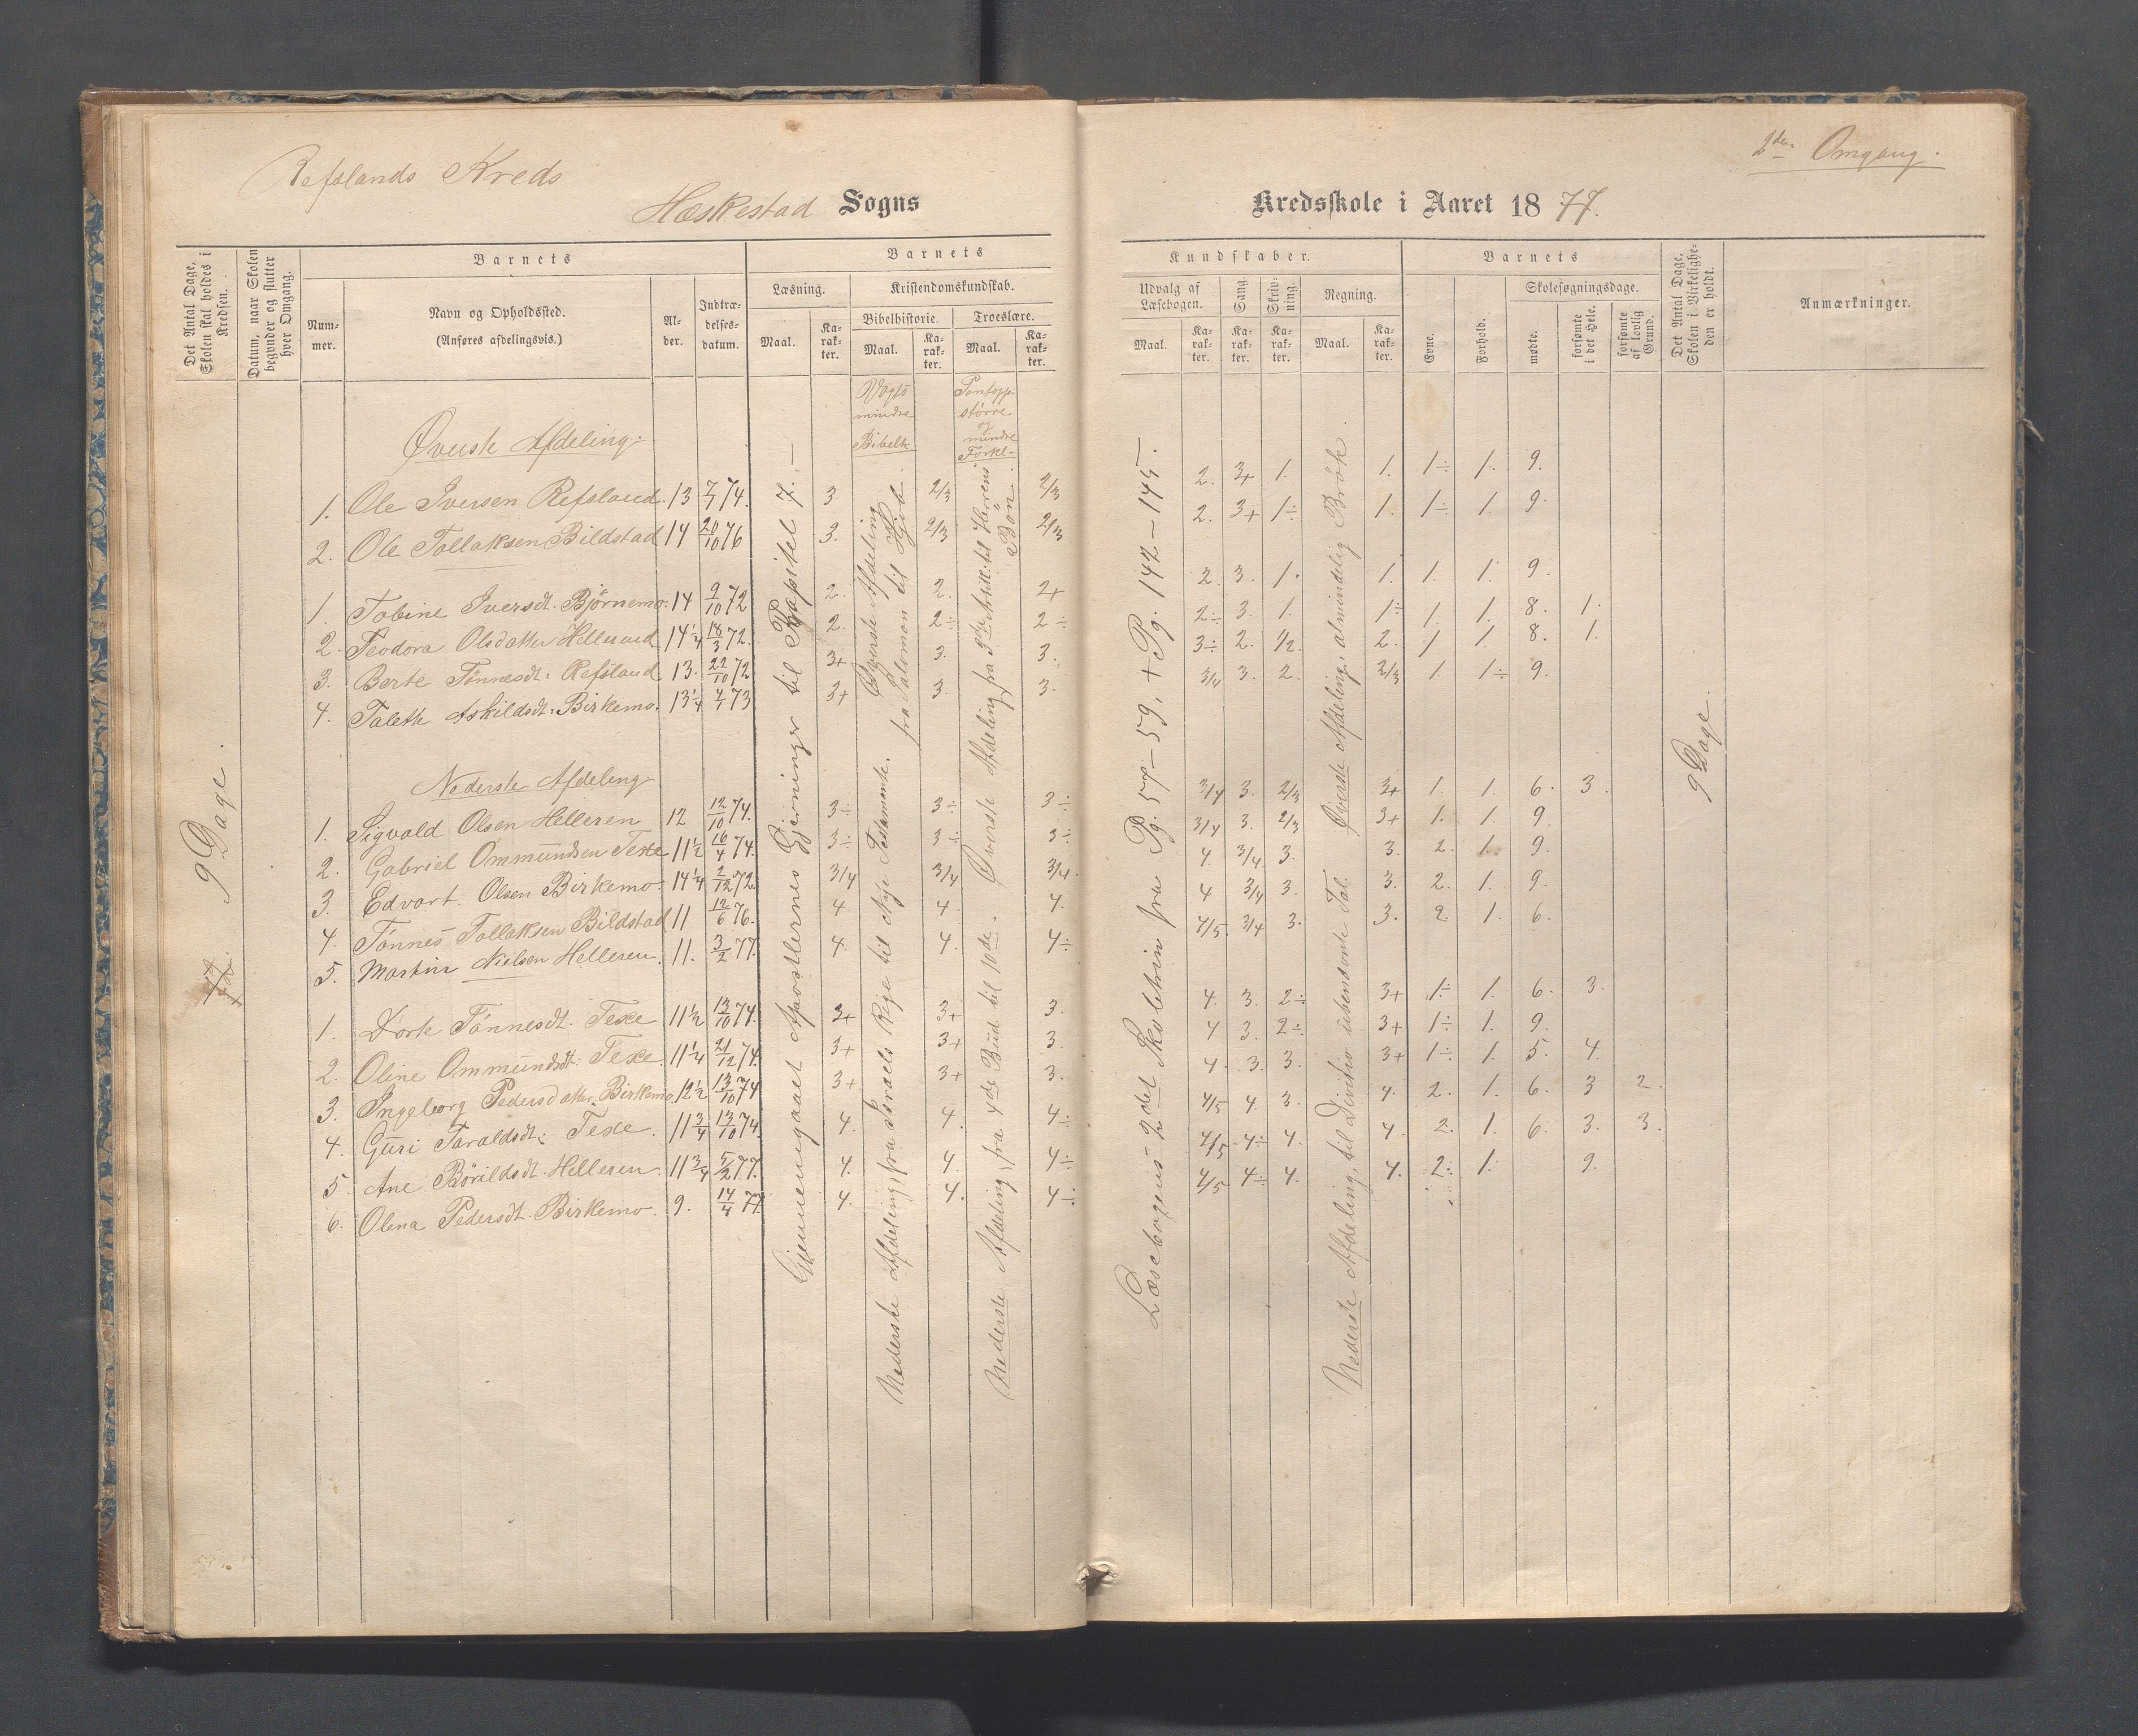 Refslands Kreds
Heskestad Sogns
2den Omgang.
Kredsskole i Aaret 1877.
Det Antal Dage, Skolen skal holdes i Kredsen.
Datum, naar Skolen begynder og slutter hver Omgang.
Barnets
Nummer.
Navn og Opholdssted.
(Anføres afdelingsvis.)
Alder.
Indtrædelsesdatum.
Barnets
Læsning.
Kristendomskundskab.
Bibelhistorie.
Troeslære.
Maal.
Karakter.
Maal.
Karakter.
Maal.
Karakter.
Kundskaber.
Udvalg af Læsebogen.
Sang.
Skrivning.
Regning.
Maal.
Karakter.
Karakter.
Karakter.
Maal.
Karakter.
Barnets
Evne.
Forhold.
Skolesøgningsdage.
mødte.
forsømte i det Hele.
forsømte af lovlig Grund.
Det Antal Dage, Skolen i Virkeligheden er holdt.
Anmærkninger.
Vogts mindre Bibelh.
Pontopp. større og mindre Forkl.
Øverste Afdeling.
1. Ole Iversen Refsland. 13 7/1 74. 3. 2/3 2/3 2. 3+ 1. 1. 1÷ 1. 9.
2. Ole Tollaksen Bildstad 14 20/10 76 3. 2/3 2/3 2. 3+ 1÷ 1. 1÷ 1. 9.
1. Tobine Iversdt. Bjørnemo. 14 9/10 72 2. 2. 2+ 2. 3. 1. 1. 1. 1. 9.
2. Teodora Olsdatter Helleren 14 1/4 18/3 72. 2. 2÷ 2÷ 2÷ 3. 1. 1÷ 1. 1. 8. 1.
3. Berte Tönnesdt. Refsland 13. 22/10 72 3+ 3. 3. 3÷ 2. 1/2. 2. 1 1. 8. 1.
4. Talette Askildsdt. Birkemo. 13 1/4 4/1 73 3+ 3. 3. 3/4 3. 2. 2/3 1. 1÷ 9.
Nederste Afdeling
1. Sigvald Olsen Helleren 12 12/10 74. 3÷ 3÷ 3÷ 3/4 3. 2/3 3+ 1. 1. 6. 3.
2. Gabriel Ommundsen Texe 11 1/2 16/4 74. 3÷ 3÷ 3÷ 3/4 3. 2/3 3+ 1. 1. 9.
3. Edvart Olsen Birkemo. 14 1/4 2/12 72. 3/4 3/4 3/4. 4. 3/4 3. 3. 2. 1. 9.
4. Tönnes Tollaksen Bildstad 11 12/6 76. 4 4. 4. 4 3/4 3. 3. 2. 1. 9.
5. Martin Nielsen Helleren. 11. 3/2 77. 4. 4. 4÷ 4/5. 3/4 3. 3. 2. 1. 6.
1. Dorte Tönnesdt. Texe 11 1/2 13/10 74. 3+ 3+ 3. 4. 3. 2÷ 3+ 1÷ 1. 6. 3.
2. Oline Ommundsdt. Texe. 11 1/4 21/12 74. 3+ 3+ 3. 4 3. 2÷ 3+ 1÷ 1. 9.
3. Ingeborg Pedersdatter Birkemo 12 1/2 13/10 74 3+ 3+ 3. 4. 3. 3. 3+ 1÷ 1. 5. 4.
4. Guri Taraldsdt. Texe. 11 3/4 13/10 74. 4. 4. 4÷ 4/5 4. 3. 4. 2. 1. 6. 3 2.
5. Ane Börildsdt. Helleren. 11 3/4 5/2 77. 4. 4. 4÷ 4/5 4÷ 4. 4. 2. 1. 6. 3. 3.
6. Olena Pedersdt. Birkemo. 9. 14/4 77. 4. 4. 4÷ 4/5 4÷ 4. 4. 2. 1. 9.
9 Dage.
Gjennemgaaet Apostlernes Gjerninger til Kapitel 7.
Øverste Afdeling fra Salomon til Hjob.
Nederste Afdeling, fra Israels Rige til Nye Testamente.
Øverste Afdeling fra 3die Artik. til Herrens Bön.
Nederste Afdeling, fra 4de Bud til 10de.
Læsebogens 2det Skoletrin fra Pg. 57 – 59, + Pg. 142 – 145.
Øverste Afdeling, almindelig Brök.
Nederste Afdeling, til Divitio ubenævnte Tal.
9 Dage.